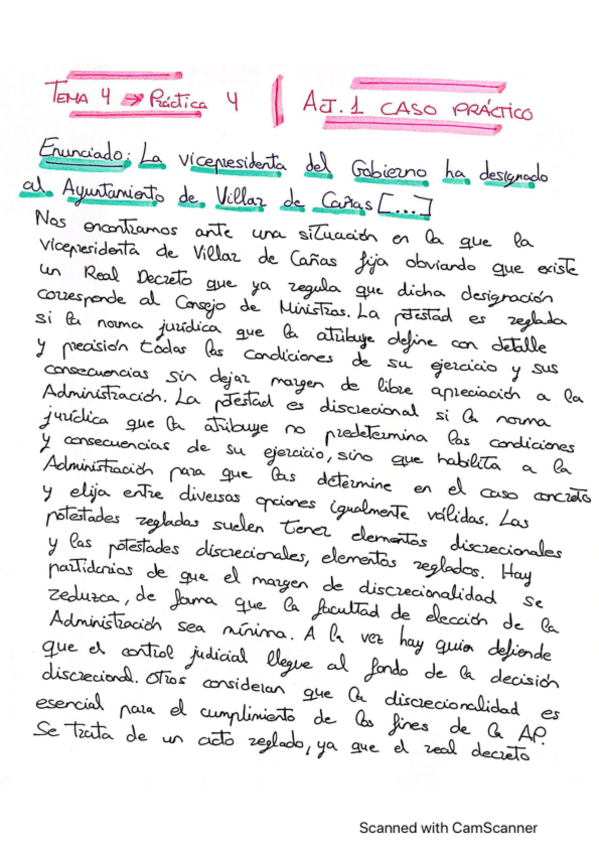 TEMA 4 → Práctica 4 | ACT. 1 CASO PRÁCTICO
Enunciado: La vicepresidenta del Gobierno ha designado
al Ayuntamiento de Villar de Cañas [....]
Nos encontramos ante una situación en la que la
vicepresidenta de Villar de Cañas fija obviando que existe
un Real Decreto que ya regula que dicha designación
corresponde al Consejo de Ministros. La potestad es reglada
si la norma jurídica que la atribuye define con detalle
y precisión todas las condiciones de su ejercicio y sus
consecuencias sin dejar margen de libre apreciación a la
Administración. La potestad es discrecional si la norma
jurídica que la atribuye no predetermina las condiciones
y consecuencias de su ejercicio, sino que habilita a la
Administración para que las determine en el caso concreto
y elija entre diversas opciones igualmente válidas. Las
potestades regladas suelen tener elementos discrecionales
y las potestades discrecionales, elementos reglados. Hay
partidarios de que el margen de discrecionalidad se
reduzca, de forma que la facultad de elección de la
Administración sea mínima. A la vez hay quien defiende
que el control judicial llegue al fondo de la decisión
discrecional. Otros consideran que la discrecionalidad es
esencial para el cumplimiento de los fines de la AP.
Se trata de un acto reglado, ya que el real decreto
Scanned with CamScanner